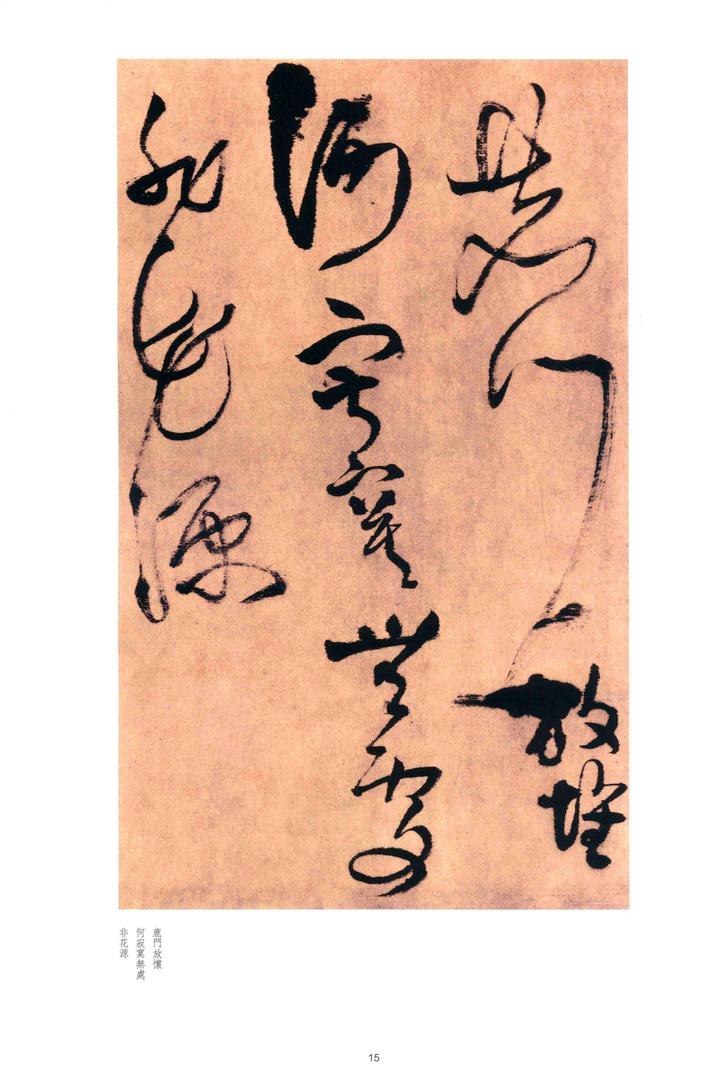 鹿門放懷
何寂寞無處
非花源
鹿門放懷
何寂寞無處
非花源
15